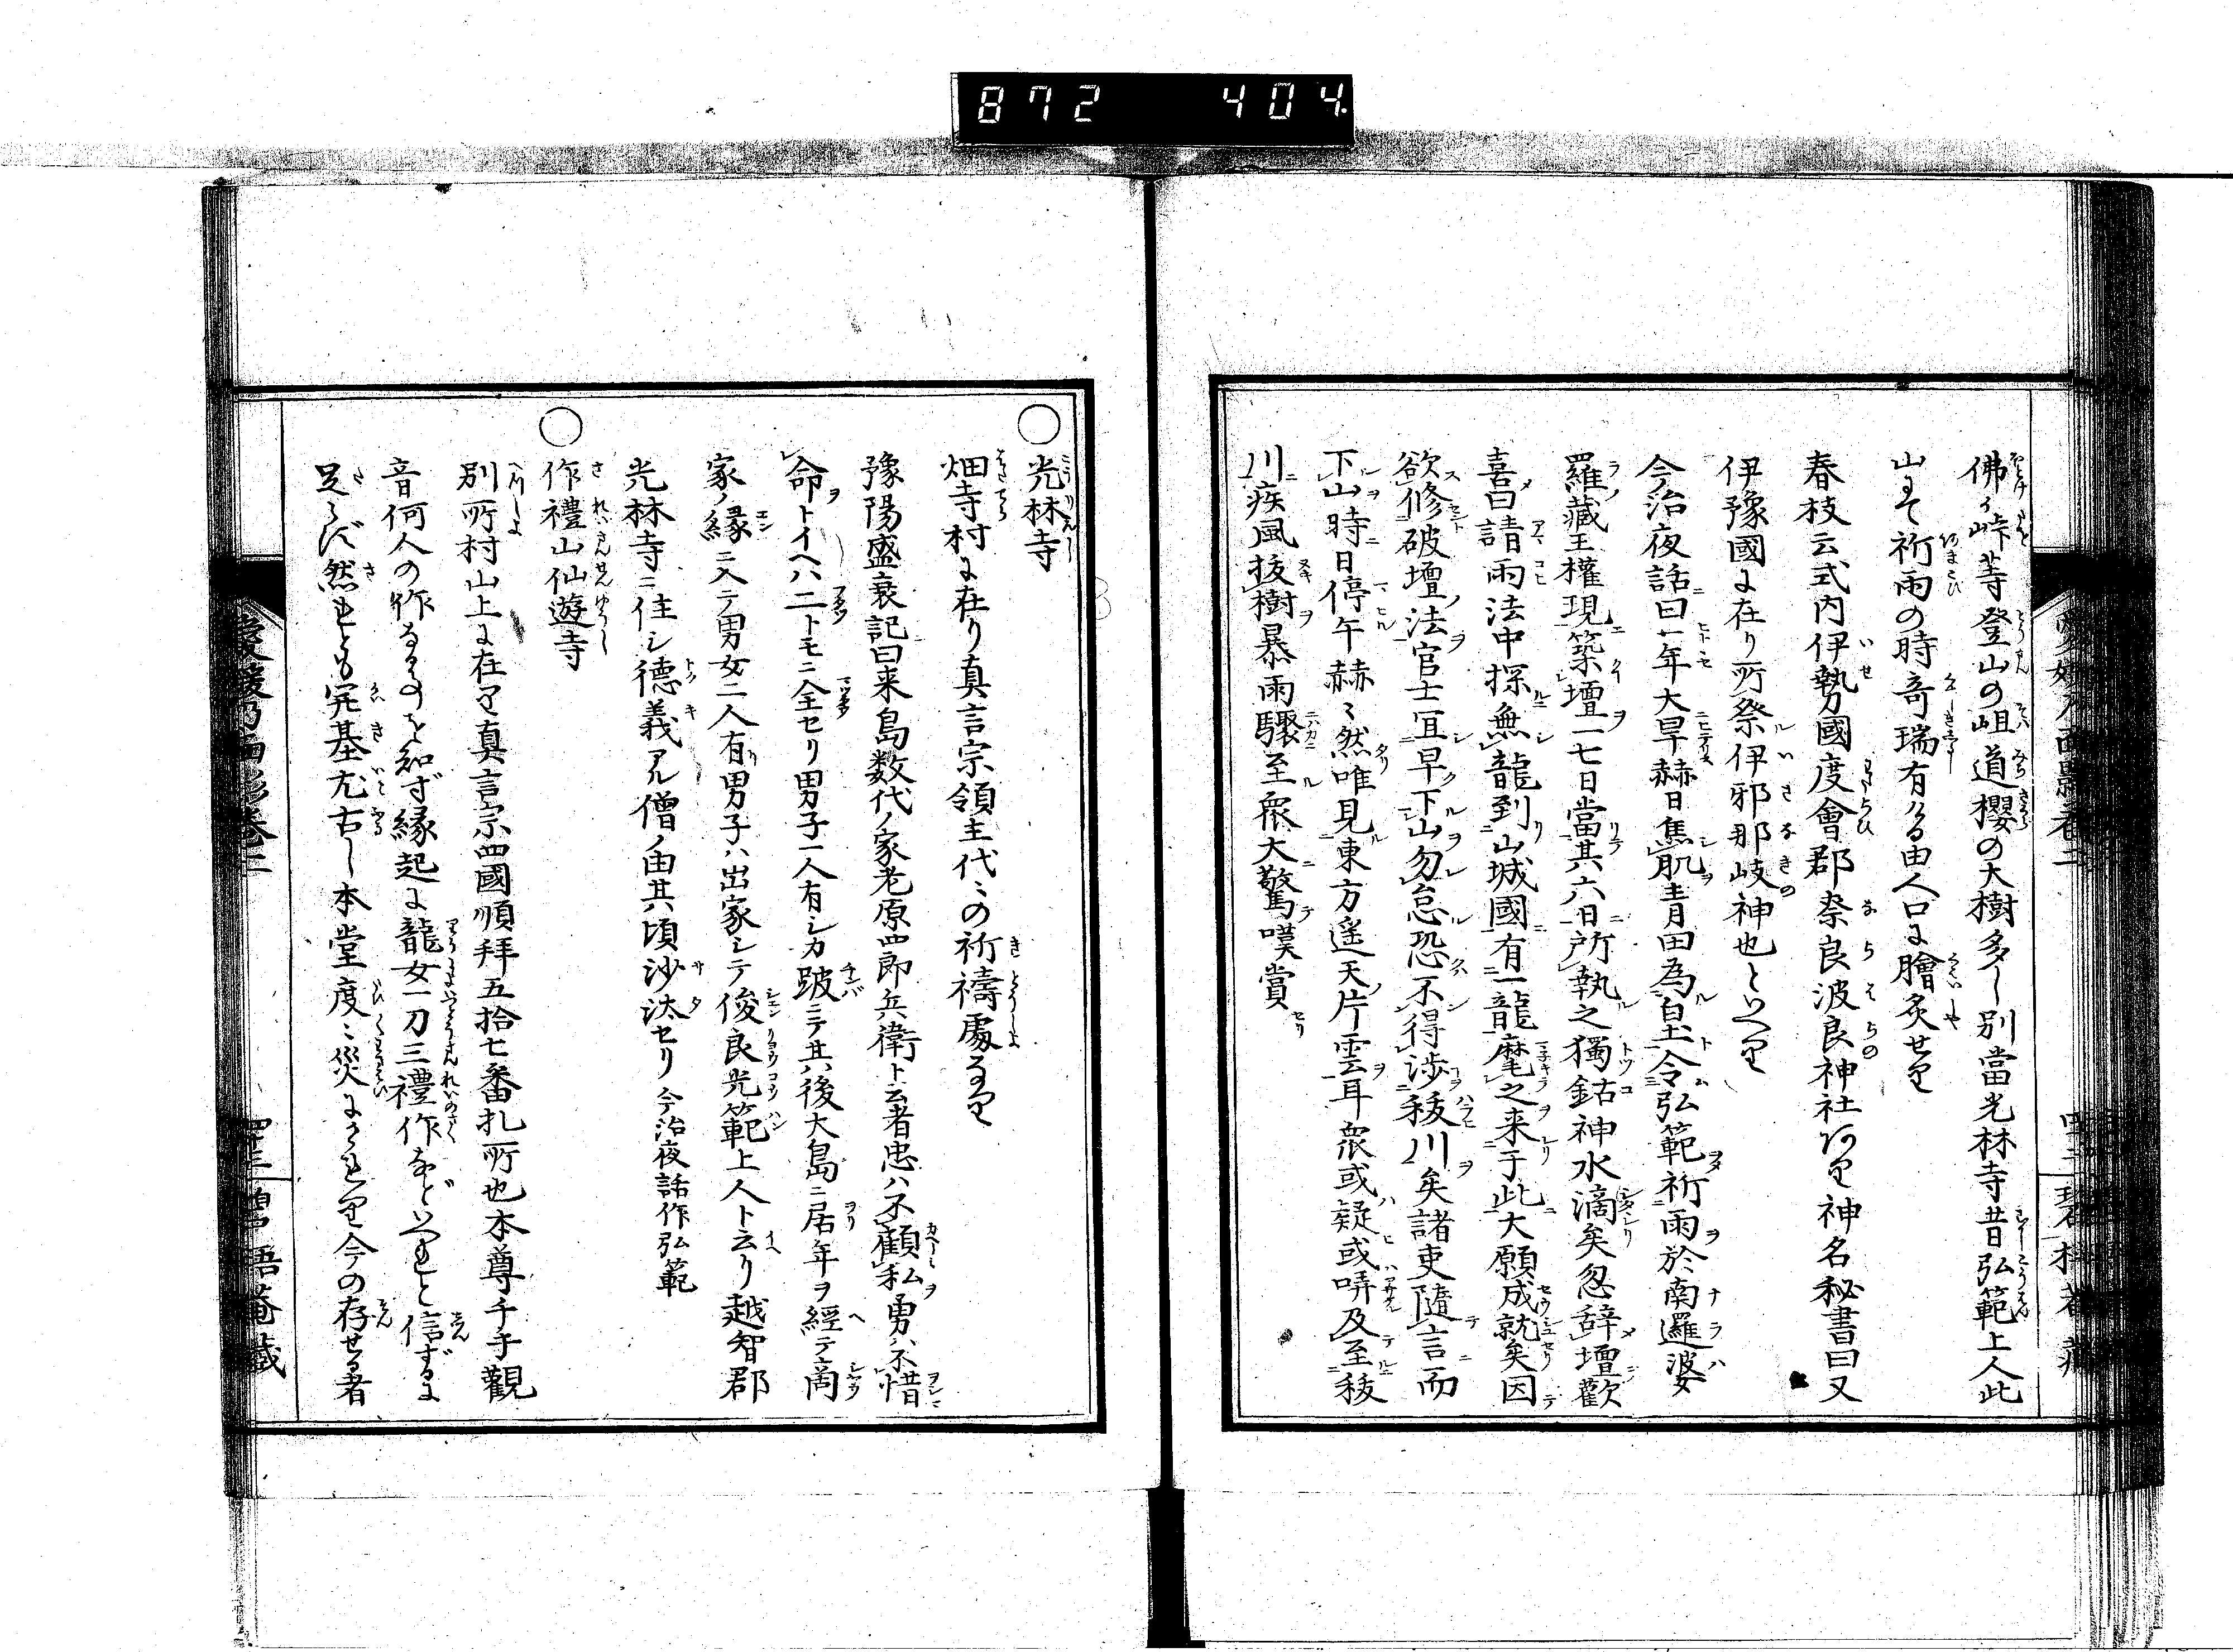 872 404
佛か峠等登山の岨道櫻の大樹多し別當光林寺昔弘範上人此
山にて祈雨の時奇瑞有ける由人口に膾炙せり
春枝云式内伊勢國度會郡奈良波良神社あり神名秘書曰又
伊豫國に在り所祭伊邪那岐神也といへり
今治夜話曰一年大旱赫日焦肌青田為皇土令弘範祈雨於南邏婆
羅藏王權現築壇一七日當其六日所執之獨鈷神水滴矣忽辞壇歡
喜曰請雨法中探無龍到山城國有一龍麾之来于此大願成就矣因
欲修破壇法官士宜早下山勿怠恐不得渉秡川矣諸吏隨言而
下山時日停午赫〻然唯見東方遥天片雲耳衆或疑或哢及至秡
川疾風拔樹暴雨驟至衆大驚嘆賞
○光林寺
畑寺村に在り真言宗領主代〻の祈禱處なり
豫陽盛衰記曰来島数代ノ家老原四郎兵衛ト云者忠ハ不顧私勇ハ不惜
命トイヘハ二トモニ全セリ男子一人有シカ跛ニテ其後大島ニ居年ヲ經テ商
家ノ縁ニ入テ男女二人有男子ハ出家シテ俊良光範上人ト云リ越智郡
光林寺ニ住シ德義アル僧ノ由其頃沙汰セリ 今治夜話作弘範
○作禮山仙遊寺
別所村山上に在り真言宗四國順拜五拾七番札所也本尊千手觀
音何人の作なるものを知ず縁起に龍女一刀三禮作などいへれと信ずるに
足らず然れとも開基尤古し本堂度〻災にかゝれり今の存せる者